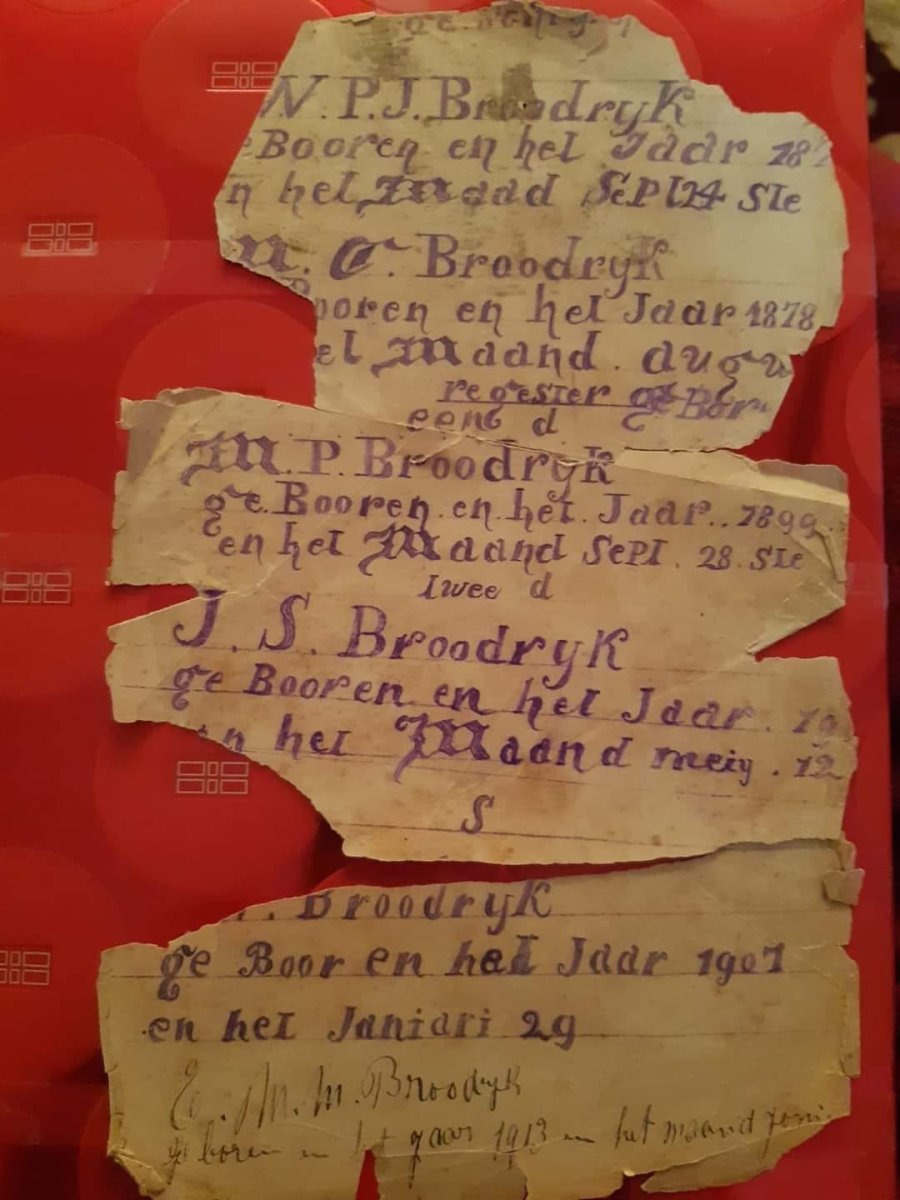 W.P.J. Broodryk
eBooren en het Jaar 187
n het Maad Sept 24 Ste
C. Broodryk
Booren en het Jaar 1878
et Maand. augu
regester ge Bor
eene d
M.P. Broodryk
ge.Booren.en.het.Jaar..1899.
en het Maand Sept. 28. Ste
twee d
J.S. Broodryk
ge Booren en het Jaar. 19
n het Maand meiy. 12
S
Broodryk
ge Boor en het Jaar 1907
en het Janiari 29
M.M. Broodryk
ge boren in het yaar 1913 en het maand Joni